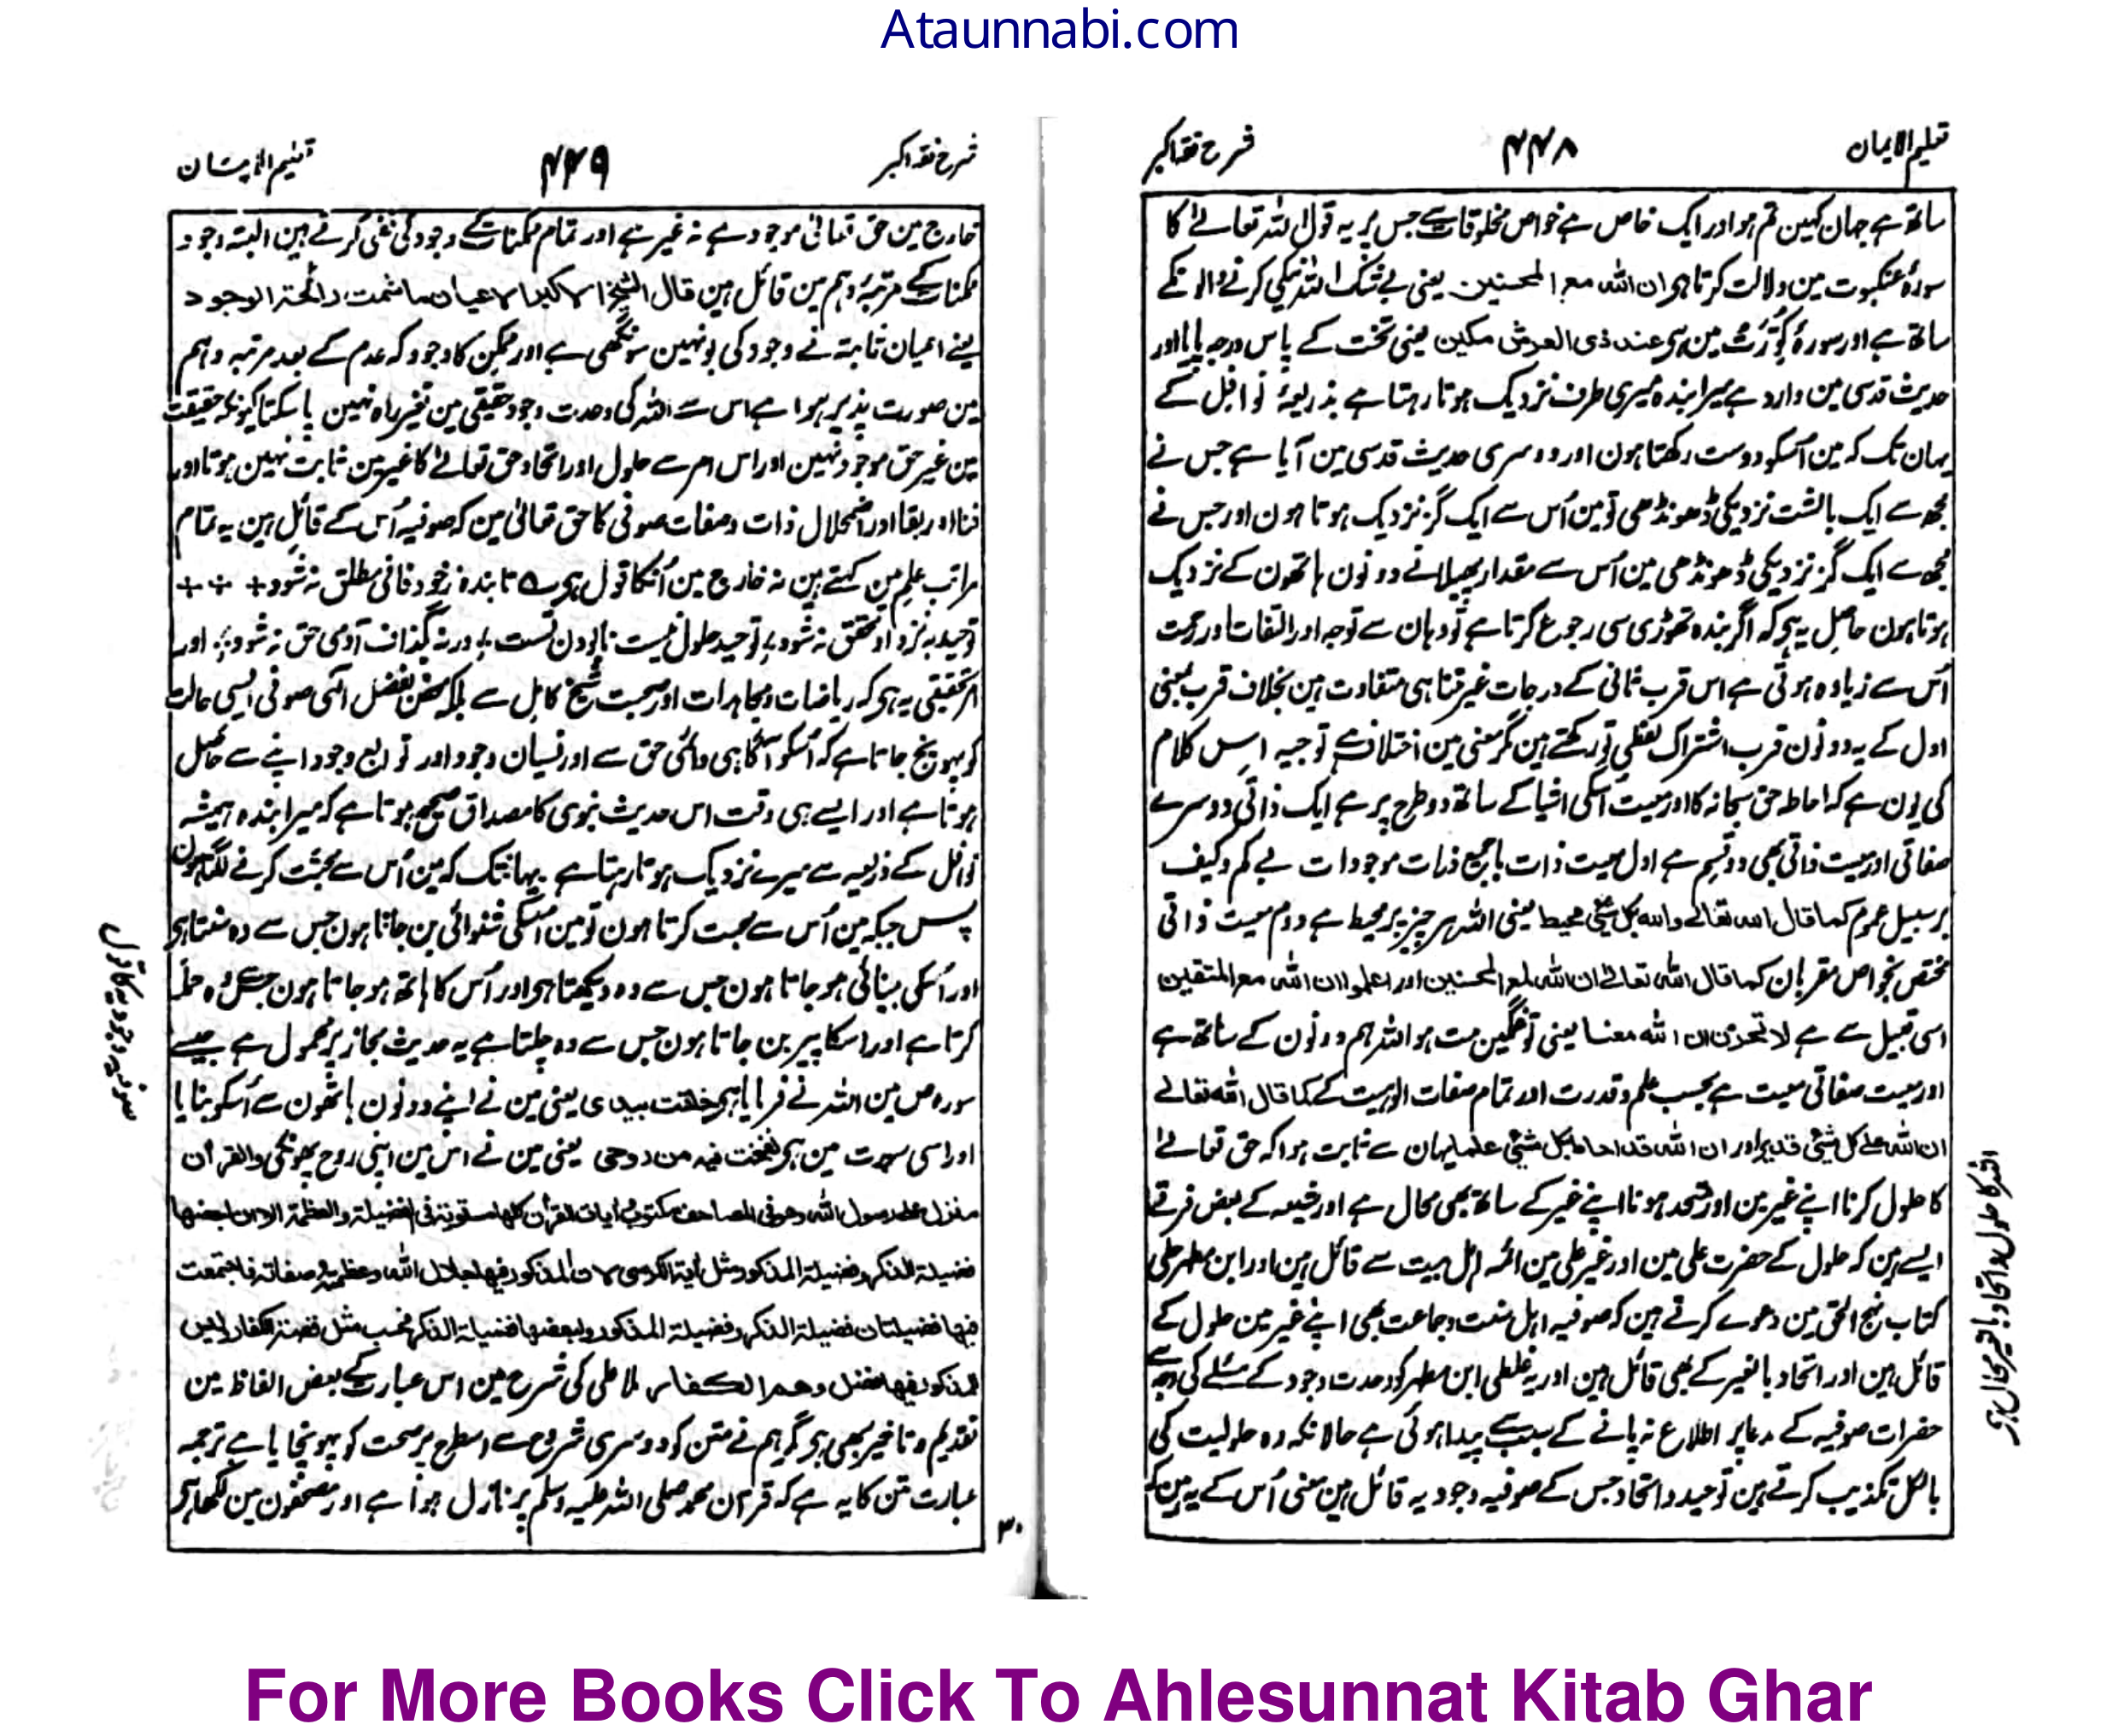 Ataunnabi.com
تعلیم الایمان
۴۴۸
شرح فقہ اکبر
ساتھ ہے جہان کہین تم ہو اور ایک خاص ہے خواص مخلوقات سے جس پر یہ قول اللہ تعالےٰ کا
سورۂ عنکبوت مین دلالت کرتا ہی ان اللہ مع المحسنین یعنی بے شک اللہ نیکی کرنے والونکے
ساتھ ہے اور سورۂ کُوِّرَتْ مین ہی عند ذی العرش مکین یعنی تخت کے پاس درجہ پایا اور
حدیث قدسی مین وارد ہے میرا بندہ میری طرف نزدیک ہوتا رہتا ہے بذریعۂ نوافل کے
یہان تک کہ مین اُسکو دوست رکھتا ہون اور دوسری حدیث قدسی مین آیا ہے جس نے
مجھ سے ایک بالشت نزدیکی ڈھونڈھی تو مین اُس سے ایک گز نزدیک ہوتا ہون اور جس نے
مجھ سے ایک گز نزدیکی ڈھونڈھی مین اُس سے مقدار پھیلانے دونون ہاتھون کے نزدیک
ہوتا ہون حاصل یہ ہی کہ اگر بندہ تھوڑی سی رجوع کرتا ہے تو وہان سے توجہ اور التفات اور رحمت
اُس سے زیادہ ہوتی ہے اس قرب ثانی کے درجات غیر متناہی متفاوت ہین بخلاف قرب بمعنی
اول کے یہ دونون قرب اشتراک لفظی تو رکھتے ہین مگر معنی مین اختلاف ہے توجیہ اس کلام
کی یون ہے کہ احاطہ حق سبحانہ کا اور معیت اُسکی اشیا کے ساتھ دو طرح پر ہے ایک ذاتی دوسرے
صفاتی اور معیت ذاتی بھی دو قسم ہے اول معیت ذات باجمیع ذرات موجودات بے کم وکیف
برسبیل عموم کما قال اللہ تعالےٰ واللہ بکل شیٔ محیط یعنی اللہ ہر چیز پر محیط ہے دوم معیت ذاتی
مختص بخواص مقربان کما قال اللہ تعالےٰ ان اللہ لمع المحسنین اور اعلموا ان اللہ مع المتقین
اسی قبیل سے ہے لا تحزن ان اللہ معنا یعنی تو غمگین مت ہو اللہ ہم دونون کے ساتھ ہے
اور معیت صفاتی معیت ہے بحسب علم وقدرت اور تمام صفات الوہیت کے کما قال اللہ تعالے
ان اللہ علے کل شیٔ قدیر اور ان اللہ قد احاط بکل شیٔ علما یہان سے ثابت ہوا کہ حق تعالےٰ
کا حلول کرنا اپنے غیر مین اور متحد ہونا اپنے غیر کے ساتھ بھی محال ہے اور شیعہ کے بعض فرقے
ایسے ہین کہ حلول کے حضرت علی مین اور غیر علی مین ائمہ اہل بیت سے قائل ہین اور ابن مطہر حلی
کتاب نہج الحق مین دعوے کرتے ہین کہ صوفیہ اہل سنت وجماعت بھی اپنے غیر مین حلول کے
قائل ہین اور اتحاد بالغیر کے بھی قائل ہین اور یہ غلطی ابن مطہر کو وحدت وجود کے مسئلے کی وجہ سے
حضرات صوفیہ کے مدعا پر اطلاع نہ پانے کے سبب سے پیدا ہوئی ہے حالانکہ وہ حلولیت کی
بالکل تکذیب کرتے ہین توحید واتحاد جس کے صوفیہ وجودیہ قائل ہین معنی اُس کے یہ ہین کہ
اللہ کا حلول و اتحاد با غیر محال ہی
شرح فقہ اکبر
۴۴۹
تعلیم الایمان
خارج مین حق تعالیٰ موجود ہے نہ غیر ہے اور تمام ممکنات کے وجود کی نفی کرتے ہین البتہ وجود
ممکنات کے مرتبۂ وہم مین قائل ہین قال الشیخ الاکبر الاعیان ما شمت رائحۃ الوجود
یعنے اعیان ثابتہ نے وجود کی بو نہین سونگھی ہے اور ممکن کا وجود کہ عدم کے بعد مرتبہ وہم
مین صورت پذیر ہوا ہے اس سے اللہ کی وحدت وجود حقیقی مین تغیر راہ نہین پا سکتا کیونکہ حقیقت
مین غیر حق موجود نہین اور اس امر سے حلول اور اتحاد حق تعالےٰ کا غیر مین ثابت نہین ہوتا اور
فنا اور بقا اور اضمحلال ذات وصفات صوفی کا حق تعالیٰ مین کہ صوفیہ اُس کے قائل ہین یہ تمام
مراتب علم مین کہتے ہین نہ خارج مین اُنکا قول ہی ؎ تا بندہ زخود فانی مطلق نہ شود + ÷ +
توحید بہ نزد او محقق نہ شود ÷ توحید حلول نیست نابودن تست ÷ ورنہ بگذاف آدمی حق نہ شود ÷ اور
امر تحقیقی یہ ہی کہ ریاضات ومجاہدات اور صحبت شیخ کامل سے بلکہ محض بفضل الٰہی صوفی ایسی حالت
کو پہونچ جاتا ہے کہ اُسکو آگاہی دائمی حق سے اور نسیان وجود اور توابع وجود اپنے سے حاصل
ہوتا ہے اور ایسے ہی وقت اس حدیث نبوی کا مصداق صحیح ہوتا ہے کہ میرا بندہ ہمیشہ
نوافل کے ذریعہ سے میرے نزدیک ہوتا رہتا ہے یہانتک کہ مین اُس سے محبت کرنے لگتا ہون
پس جبکہ مین اُس سے محبت کرتا ہون تو مین اُسکی شنوائی بن جاتا ہون جس سے وہ سنتا ہی
اور اُسکی بینائی ہو جاتا ہون جس سے وہ دیکھتا ہی اور اُس کا ہاتھ ہو جاتا ہون جس سے وہ حملہ
کرتا ہے اور اسکا پیر بن جاتا ہون جس سے وہ چلتا ہے یہ حدیث مجاز پر محمول ہے جیسے
سورہ ص مین اللہ نے فرمایا ہی خلقت بیدی یعنی مین نے اپنے دونون ہاتھون سے اُسکو بنایا
اور اسی سورت مین ہی نفخت فیہ من روحی یعنی مین نے اس مین اپنی روح پھونکی والقران
منزل علی رسول اللہ وھو فی المصاحف مکتوب وایات القرآن کلھا مستویۃ فی الفضیلۃ والعظمۃ الا ان لبعضھا
فضیلۃ الذکر وفضیلۃ المذکور مثل ایۃ الکرسی لان المذکور فیھا جلال اللہ وعظمتہ وصفاتہ فاجتمعت
فیھا فضیلتان فضیلۃ الذکر وفضیلۃ المذکور ولبعضھا فضیلۃ الذکر فحسب مثل قصۃ الکفار ولیس
للمذکور فیھا فضل وھم الکفار ملا علی کی شرح مین اس عبارت کے بعض الفاظ مین
تقدیم وتاخیر بھی ہی مگر ہم نے متن کو دوسری شروح سے اسطرح پر صحت کو پہونچایا ہے ترجمہ
عبارت متن کا یہ ہے کہ قرآن محمد صلی اللہ علیہ وسلم پر نازل ہوا ہے اور مصحفون مین لکھا ہی
صوفیہ وجودیہ کا قول
۳۰
For More Books Click To Ahlesunnat Kitab Ghar